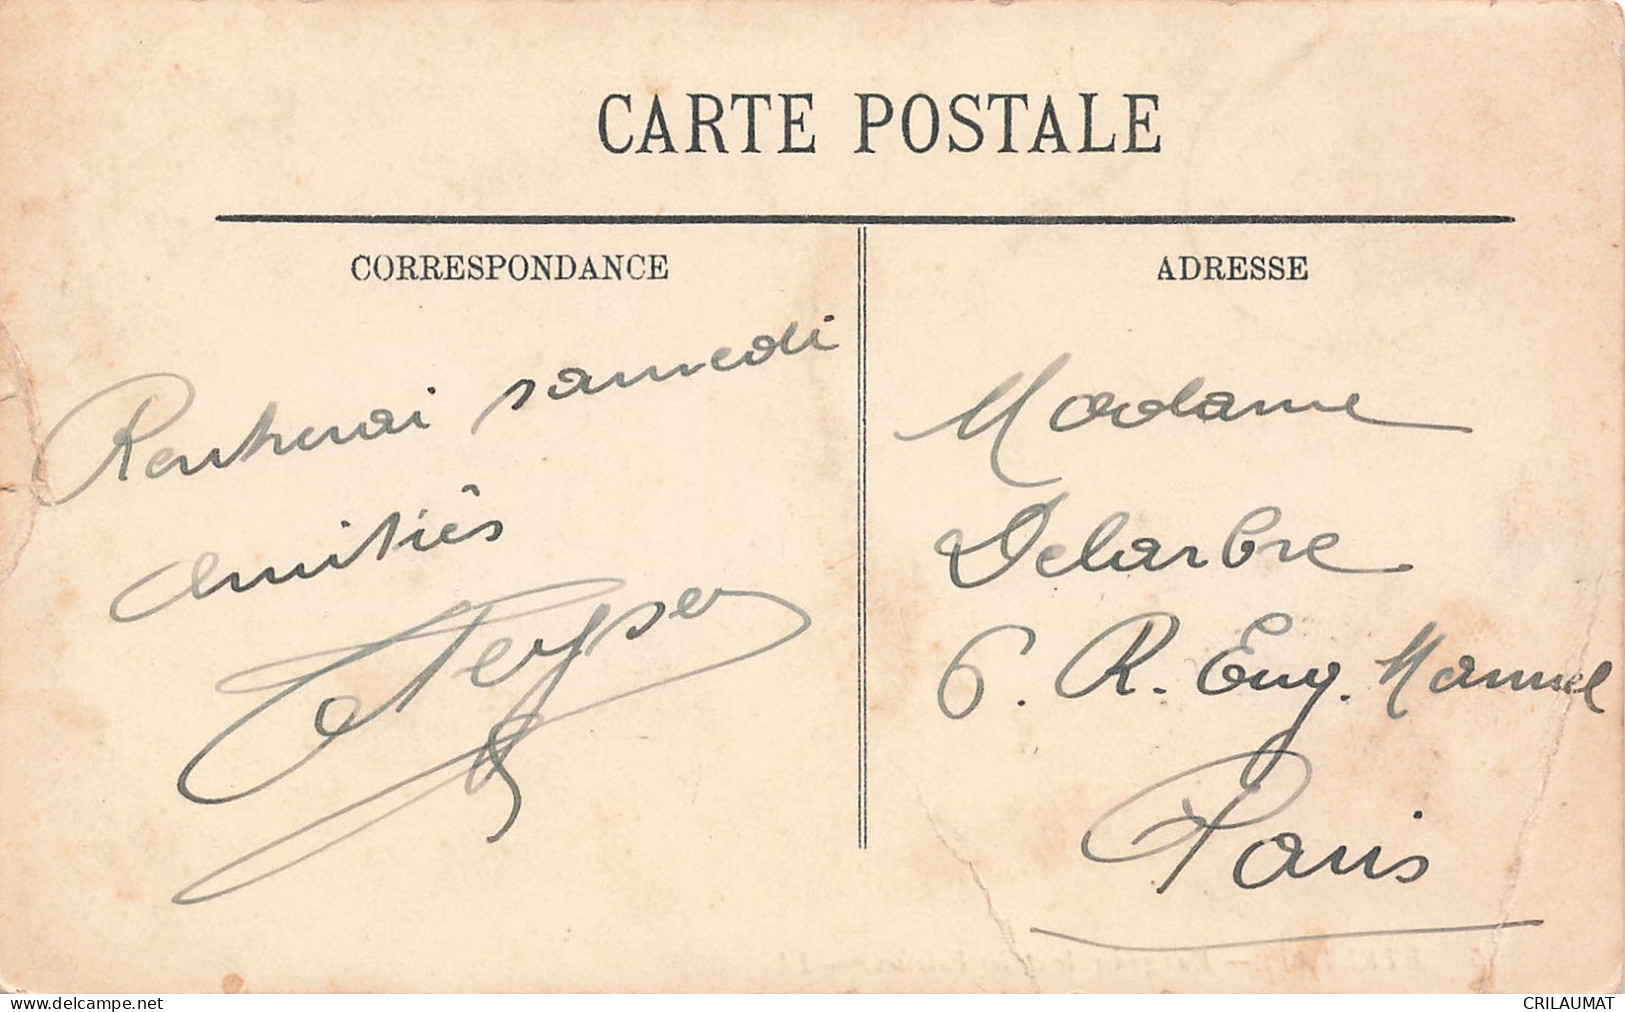 CARTE POSTALE
CORRESPONDANCE
Rentrerai samedi
amitiés
ADRESSE
Madame
Delarbre
6. R. Eug. Manuel
Paris
www.delcampe.net
CRILAUMAT